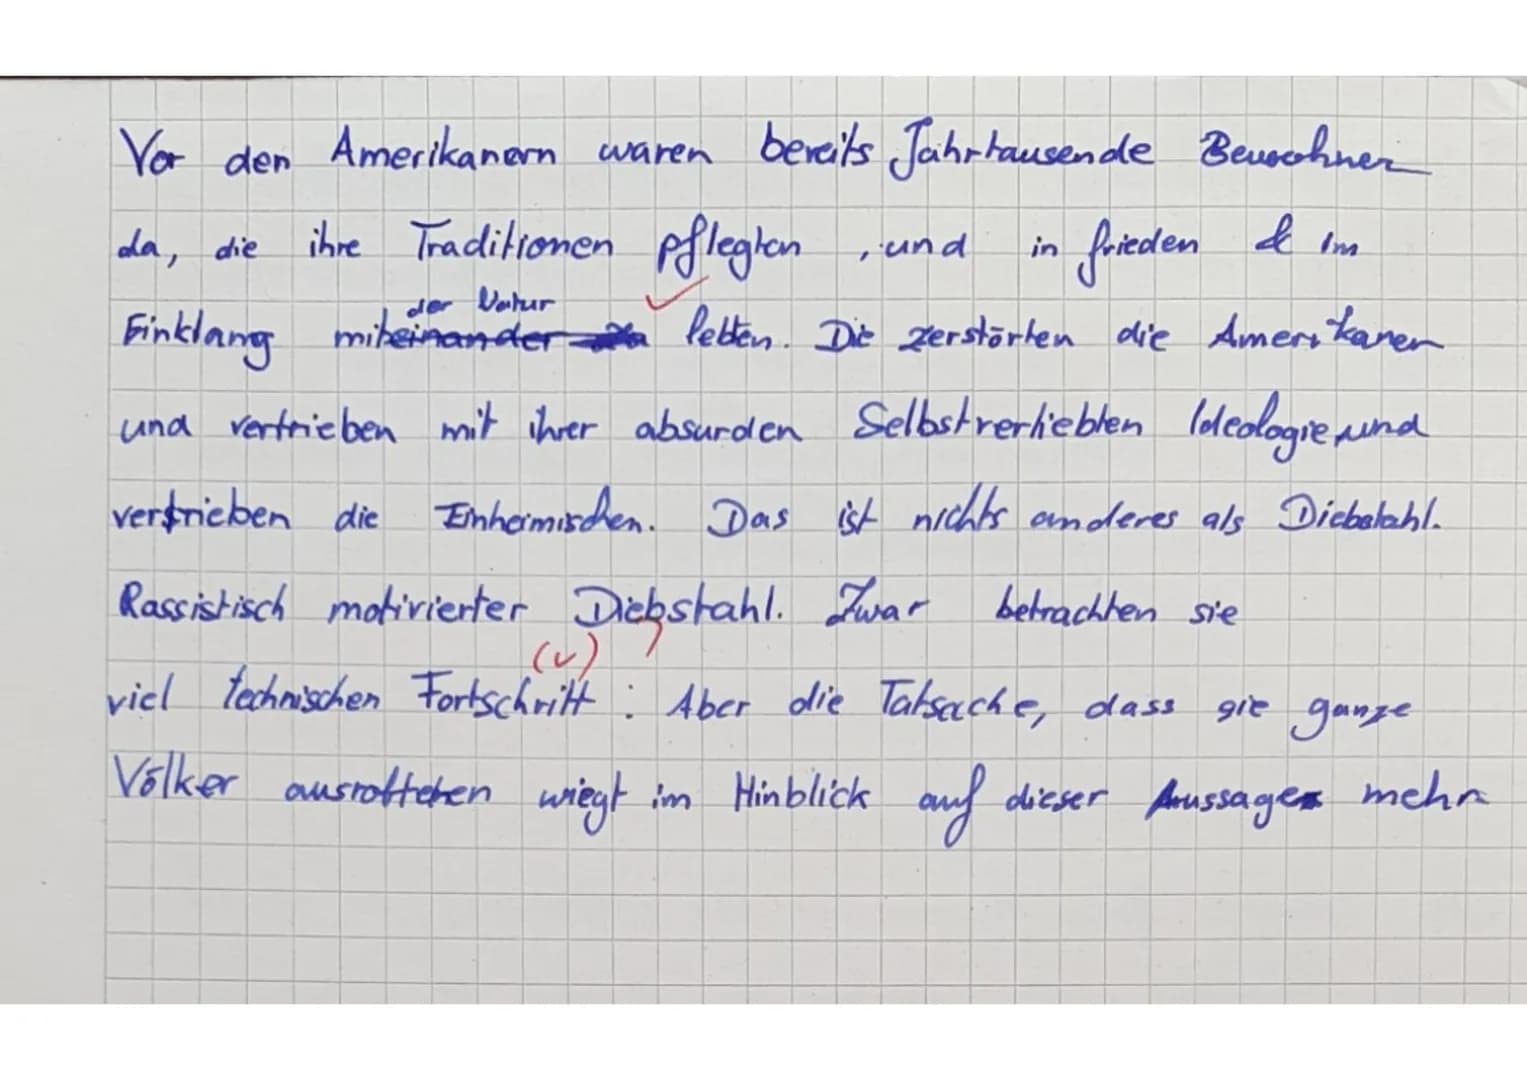 Vor den Amerikanern waren bereits Jahrtausende Bewohner
da, die ihre Traditionen pflegten , und in frieden & im
der Natur
Einklang miteinander lebten. Die zerstörten die Amerikaner
und vertrieben mit ihrer absurden Selbstverliebten Ideologie und
vertrieben die Einheimischen. Das ist nichts anderes als Diebstahl.
Rassistisch motivierter Diebstahl. Zwar betrachten sie
(✓)
viel technischen Fortschritt : Aber die Tatsache, dass sie ganze
Völker ausrotteten wiegt im Hinblick auf dieser Aussage mehr